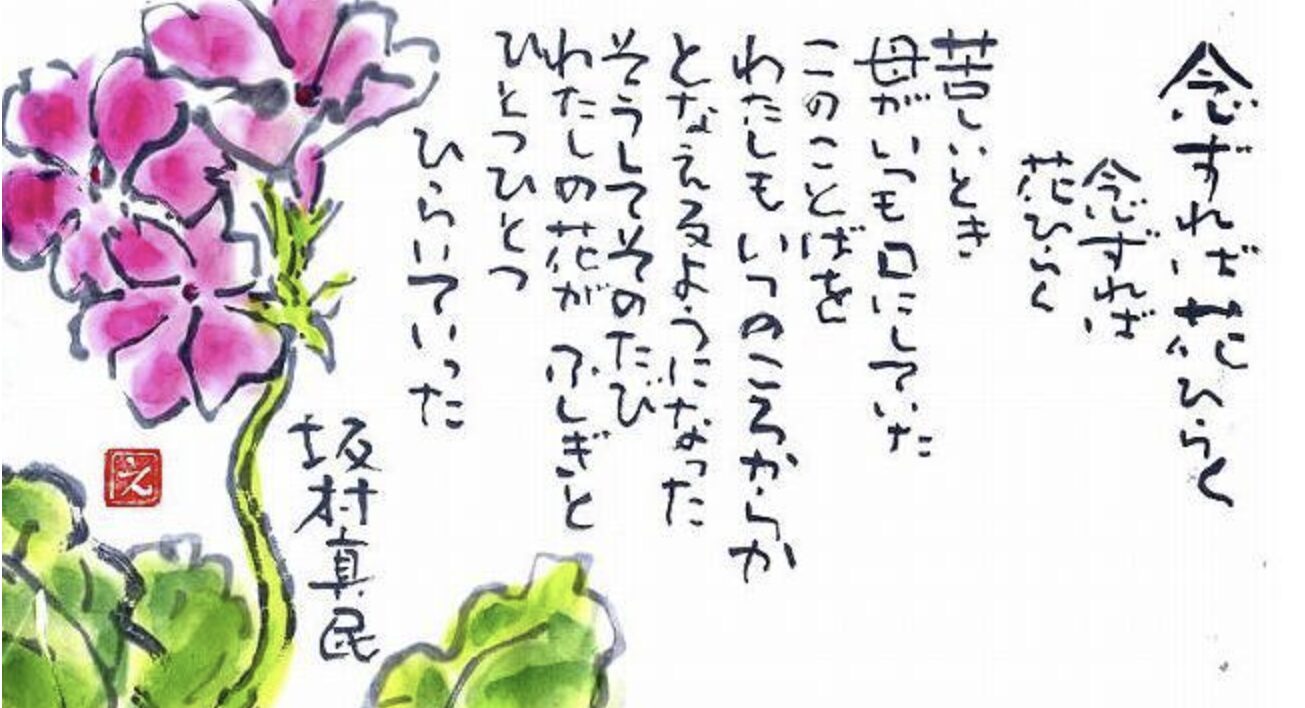 念ずれば花ひらく
念ずれば
花ひらく
苦しいとき
母がいつも口にしていた
このことばを
わたしもいつのころからか
となえるようになった
そうしてそのたび
わたしの花がふしぎと
ひとつひとつ
ひらいていった
坂村真民
え